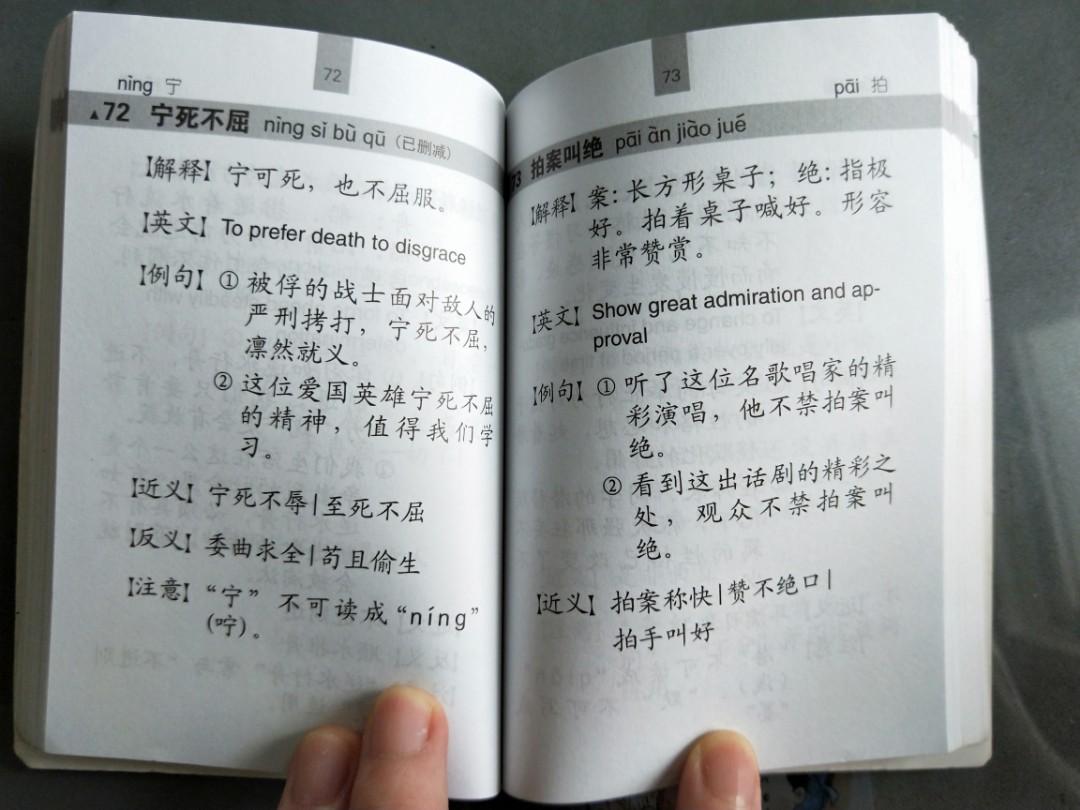 72
nìng 宁
▲72 宁死不屈 nìng sǐ bù qū (已删减)
【解释】宁可死，也不屈服。
【英文】To prefer death to disgrace
【例句】① 被俘的战士面对敌人的
严刑拷打，宁死不屈，
凛然就义。
② 这位爱国英雄宁死不屈
的精神，值得我们学
习。
【近义】宁死不辱|至死不屈
【反义】委曲求全|苟且偷生
【注意】“宁”不可读成“níng”
(咛)。
73
pāi 拍
73 拍案叫绝 pāi àn jiào jué
【解释】案：长方形桌子；绝：指极
好。拍着桌子喊好。形容
非常赞赏。
【英文】Show great admiration and ap-
proval
【例句】① 听了这位名歌唱家的精
彩演唱，他不禁拍案叫
绝。
② 看到这出话剧的精彩之
处，观众不禁拍案叫
绝。
【近义】拍案称快|赞不绝口|
拍手叫好